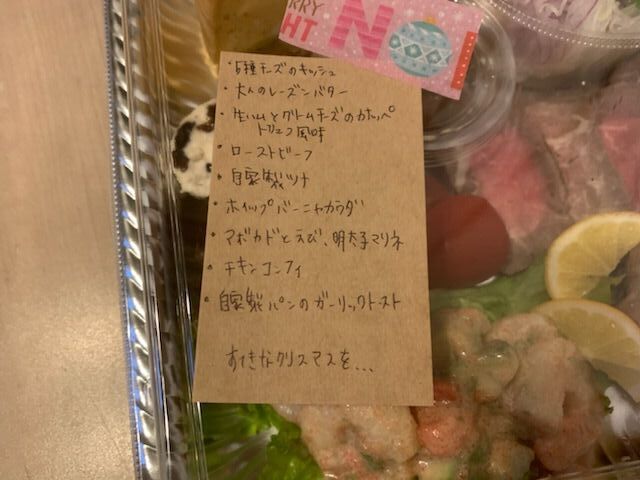 RRY
HT NO
・5種チーズのキッシュ
・大人のレーズンバター
・生ハムとクリームチーズのカナッペ
トリュフ風味
・ローストビーフ
・自家製ツナ
・ホイップバーニャカウダ
・アボカドとえび、明太子マリネ
・チキンコンフィ
・自家製パンのガーリックトースト
すてきなクリスマスを...